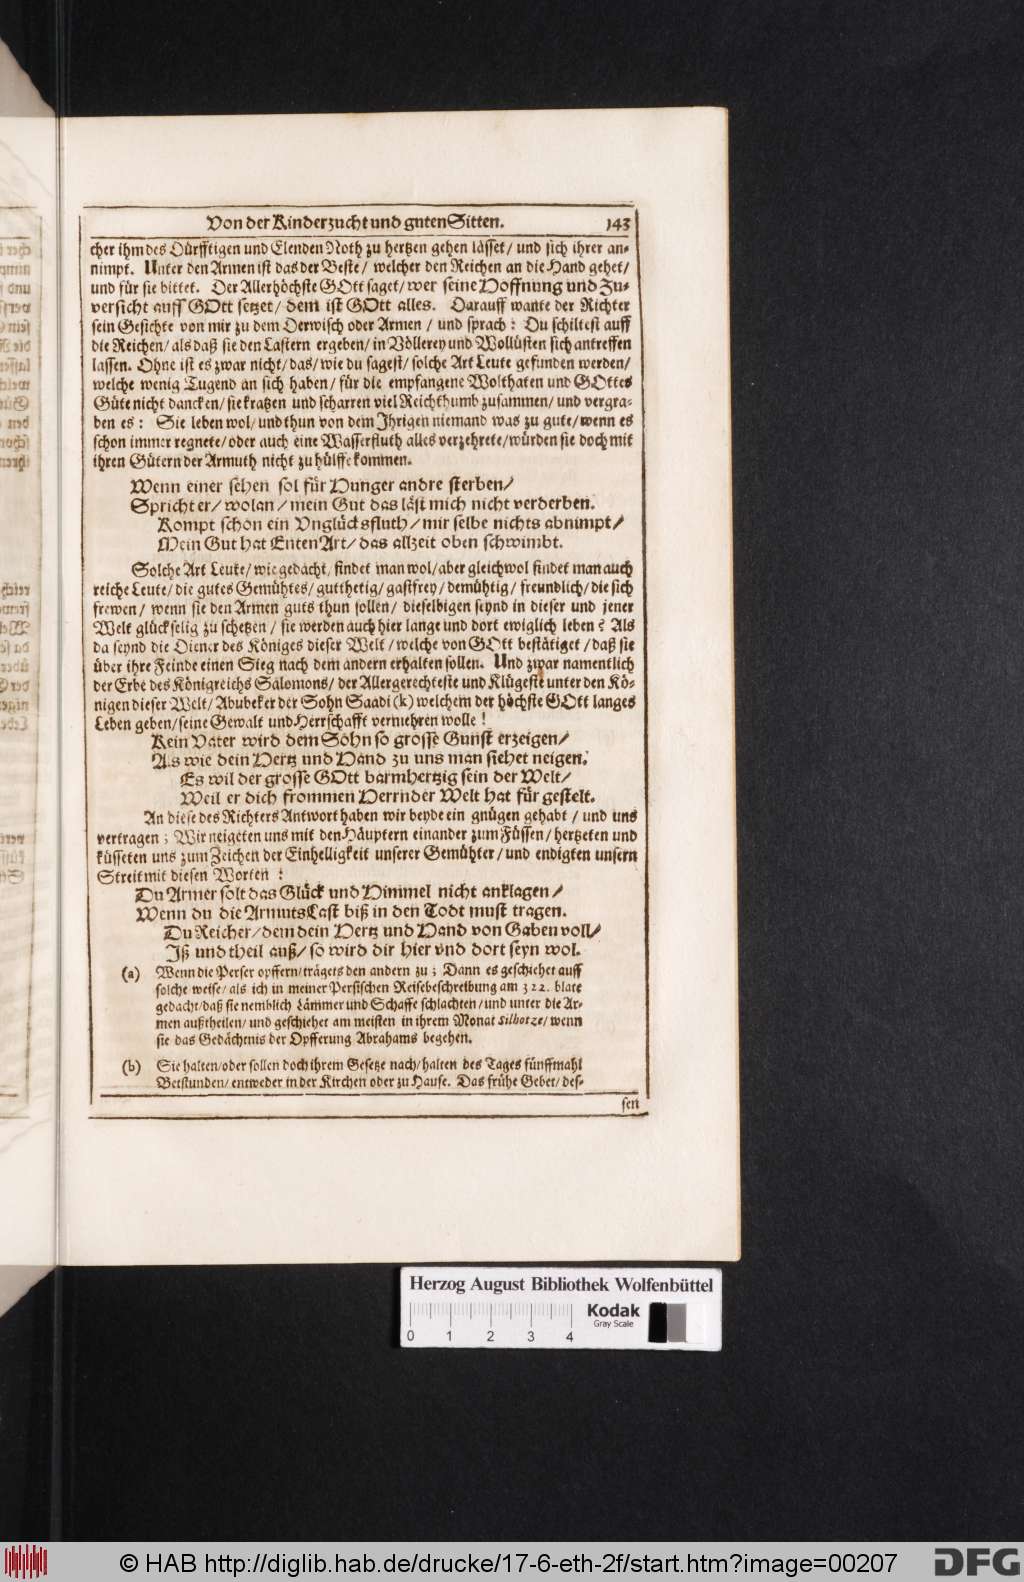 Von der Kinderzucht und guten Sitten. 143
cher ihm des Dürfftigen und Elenden Noth zu hertzen gehen lässet / und sich ihrer an-
nimpt. Unter den Armen ist das der Beste / welcher den Reichen an die Hand gehet /
und für sie bittet. Der Allerhöchste GOtt saget / wer seine Hoffnung und Zu-
versicht auff GOtt setzet / dem ist GOtt alles. Darauff wante der Richter
sein Gesichte von mir zu dem Derwisch oder Armen / und sprach : Du schiltest auff
die Reichen / als daß sie den Lastern ergeben / in Völlerey und Wollüsten sich antreffen
lassen. Ohne ist es zwar nicht / das / wie du sagest / solche Art Leute gefunden werden /
welche wenig Tugend an sich haben / für die empfangene Wolthaten und GOttes
Güte nicht dancken / sie kratzen und scharren viel Reichthumb zusammen / und vergra-
ben es : Sie leben wol / und thun von dem Ihrigen niemand was zu gute / wenn es
schon immer regnete / oder auch eine Wasserfluth alles verzehrete / würden sie doch mit
ihren Gütern der Armuth nicht zu hülffe kommen.
Wenn einer sehen sol für Hunger andre sterben /
Spricht er / wolan / mein Gut das läst mich nicht verderben.
Kompt schon ein Vnglücksfluth / mir selbe nichts abnimpt /
Mein Gut hat Enten Art / das allzeit oben schwimbt.
Solche Art Leute / wie gedacht / findet man wol / aber gleichwol findet man auch
reiche Leute / die gutes Gemühtes / gutthetig / gastfrey / demühtig / freundlich / die sich
frewen / wenn sie den Armen guts thun sollen / dieselbigen seynd in dieser und jener
Welt glückselig zu schetzen / sie werden auch hier lange und dort ewiglich leben ? Als
da seynd die Diener des Königes dieser Welt / welche von GOtt bestätiget / daß sie
über ihre Feinde einen Sieg nach dem andern erhalten sollen. Und zwar namentlich
der Erbe des Königreichs Salomons / der Allergerechteste und Klügeste unter den Kö-
nigen dieser Welt / Abubeker der Sohn Saadi (k) welchem der höchste GOtt langes
Leben geben / seine Gewalt und Herrschafft vermehren wolle !
Kein Vater wird dem Sohn so grosse Gunst erzeigen /
Als wie dein Hertz und Hand zu uns man siehet neigen.
Es wil der grosse GOtt barmhertzig sein der Welt /
Weil er dich frommen Herrn der Welt hat für gestelt.
An diese des Richters Antwort haben wir beyde ein gnügen gehabt / und uns
vertragen ; Wir neigeten uns mit den Häuptern einander zum Füssen / hertzeten und
küsseten uns zum Zeichen der Einhelligkeit unserer Gemühter / und endigten unsern
Streit mit diesen Worten :
Du Armer solt das Glück und Himmel nicht anklagen /
Wenn du die Armuts Last biß in den Todt must tragen.
Du Reicher / dem dein Hertz und Hand von Gaben voll /
Iß und theil auß / so wird dir hier vnd dort seyn wol.
(a) Wenn die Perser opffern / trägets den andern zu ; Dann es geschiehet auff
solche weise / als ich in meiner Persischen Reisebeschreibung am 322. blate
gedacht / daß sie nemblich Lämmer und Schaffe schlachten / und unter die Ar-
men außtheilen / und geschiehet am meisten in ihrem Monat Silhotze / wenn
sie das Gedächtnis der Opfferung Abrahams begehen.
(b) Sie halten / oder sollen doch ihrem Gesetze nach / halten des Tages fünffmahl
Betstunden / entweder in der Kirchen oder zu Hause. Das frühe Gebet / des-
sen
Herzog August Bibliothek Wolfenbüttel
Kodak
Gray Scale
0 1 2 3 4
© HAB http://diglib.hab.de/drucke/17-6-eth-2f/start.htm?image=00207
DFG